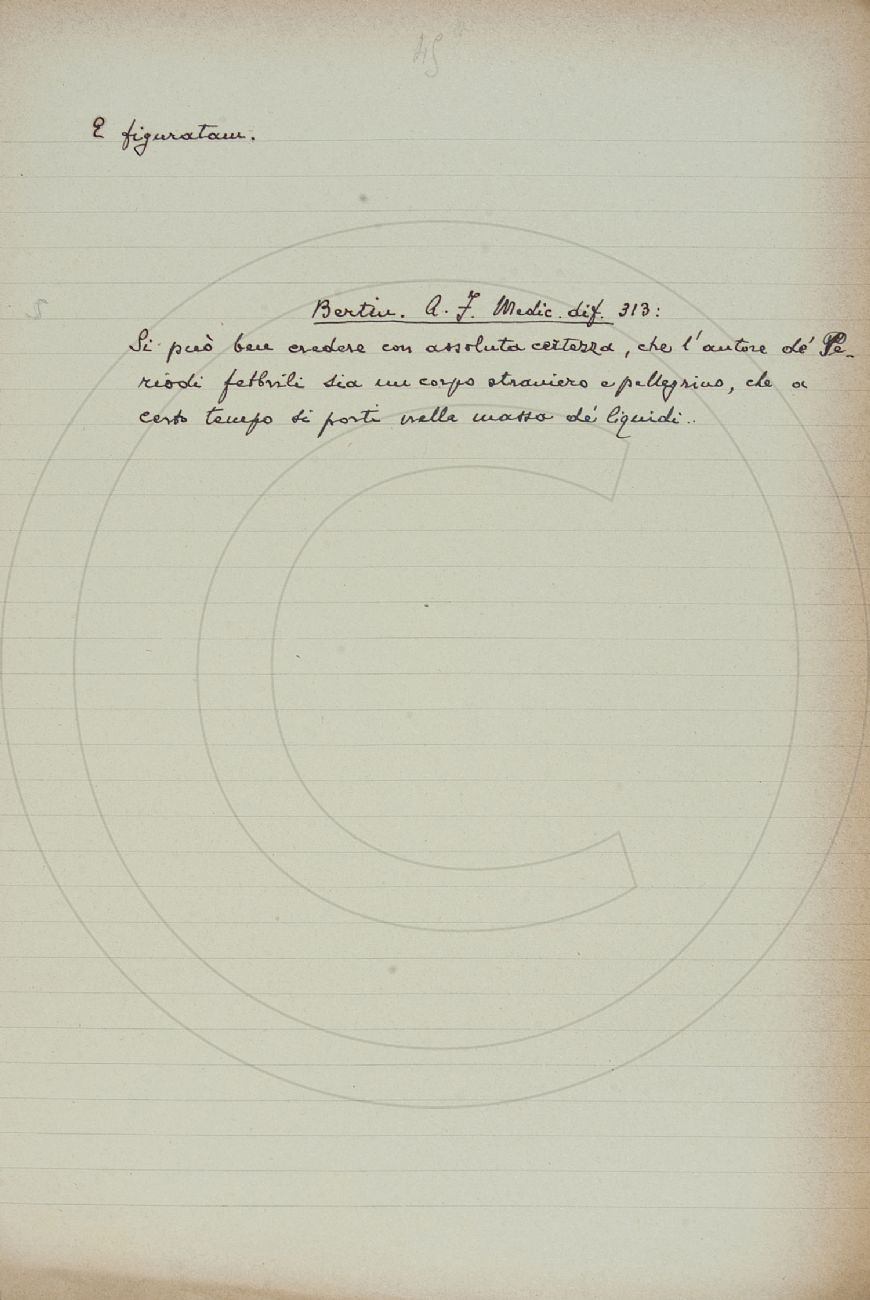 45
E figuratam.
Bertin. A. F. Medic. dif. 313:
Si può ben credere con assoluta certezza, che l'autore de' Pe-
riodi febbrili sia un corpo straniero e pellegrino, che a
certo tempo si porti nella massa de' liquidi..